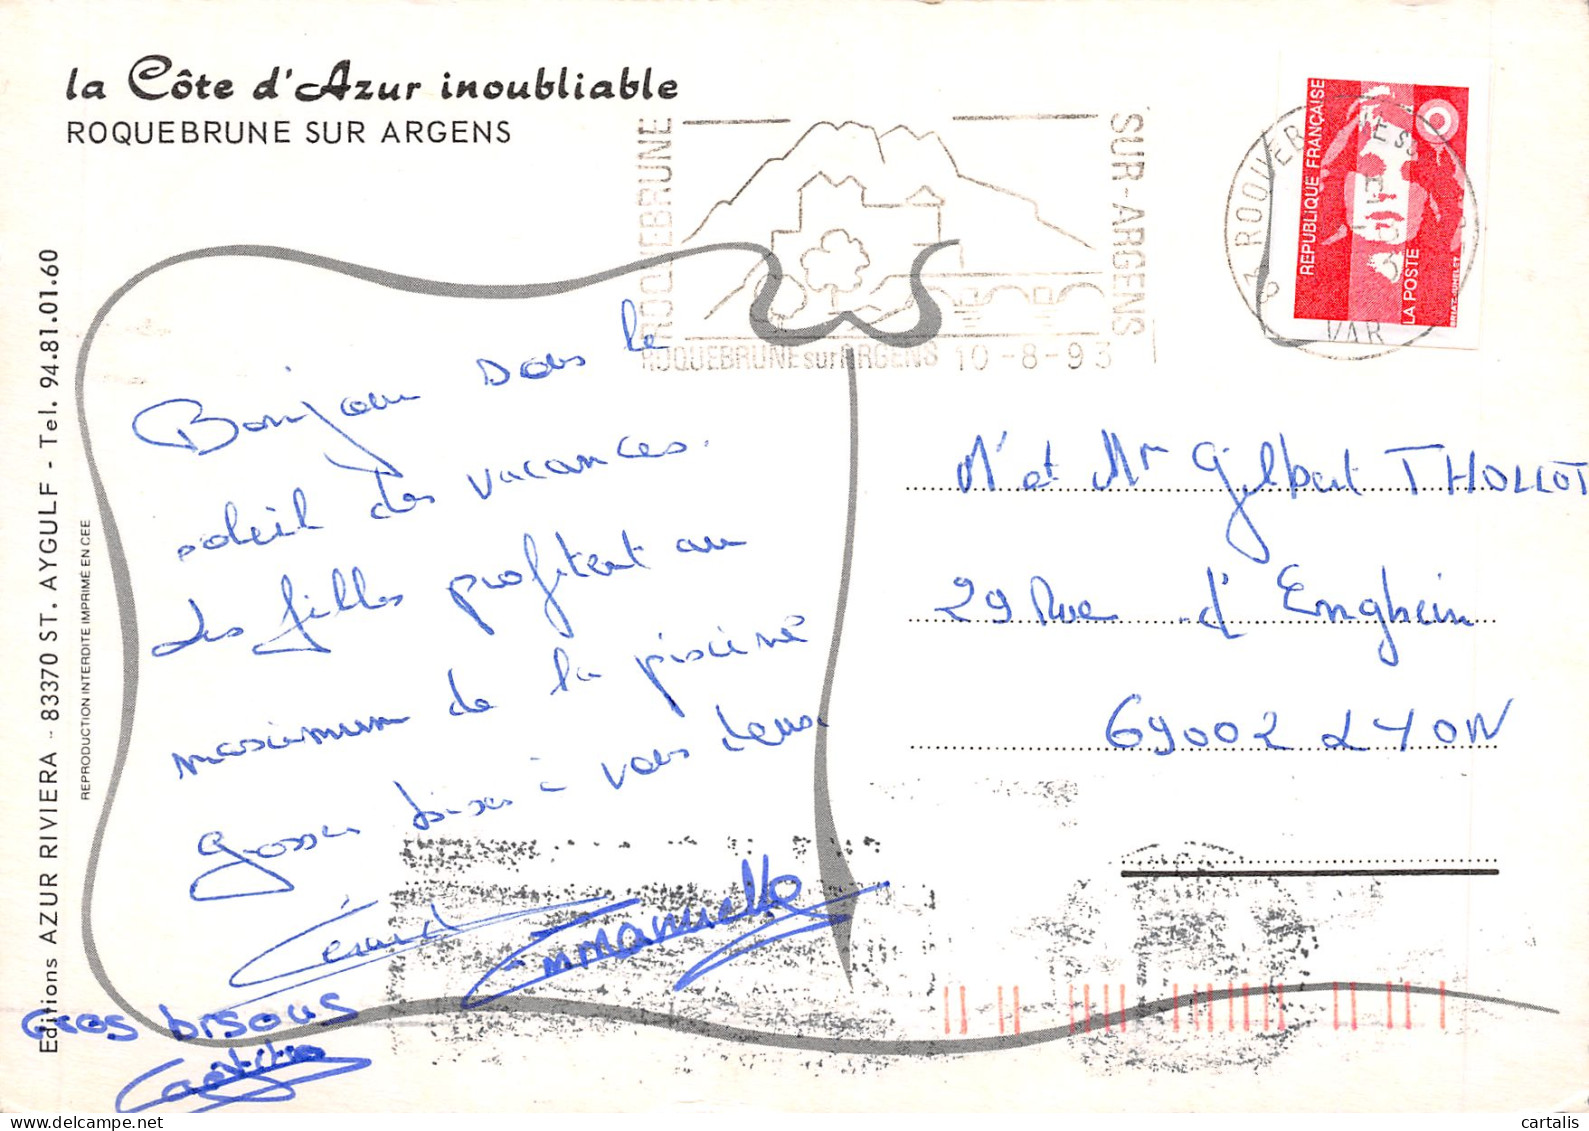 la Côte d'Azur inoubliable
ROQUEBRUNE SUR ARGENS
Editions AZUR RIVIERA - 83370 ST. AYGULF - Tel. 94.81.01.60
REPRODUCTION INTERDITE IMPRIMÉ EN CEE
ROQUEBRUNE
SUR-ARGENS
ROQUEBRUNE sur ARGENS 10-8-93
83 ROQUEB
VAR
REPUBLIQUE FRANÇAISE
LA POSTE
Bonjour sous le
soleil des vacances.
Les filles profitent au
maximum de la piscine
grosses bises à vous deux
Gérard Emmanuelle
Gros bisous
M et Mr Gilbert THOLLOT
29 Rue d'Enghein
69002 LYON
cartalis